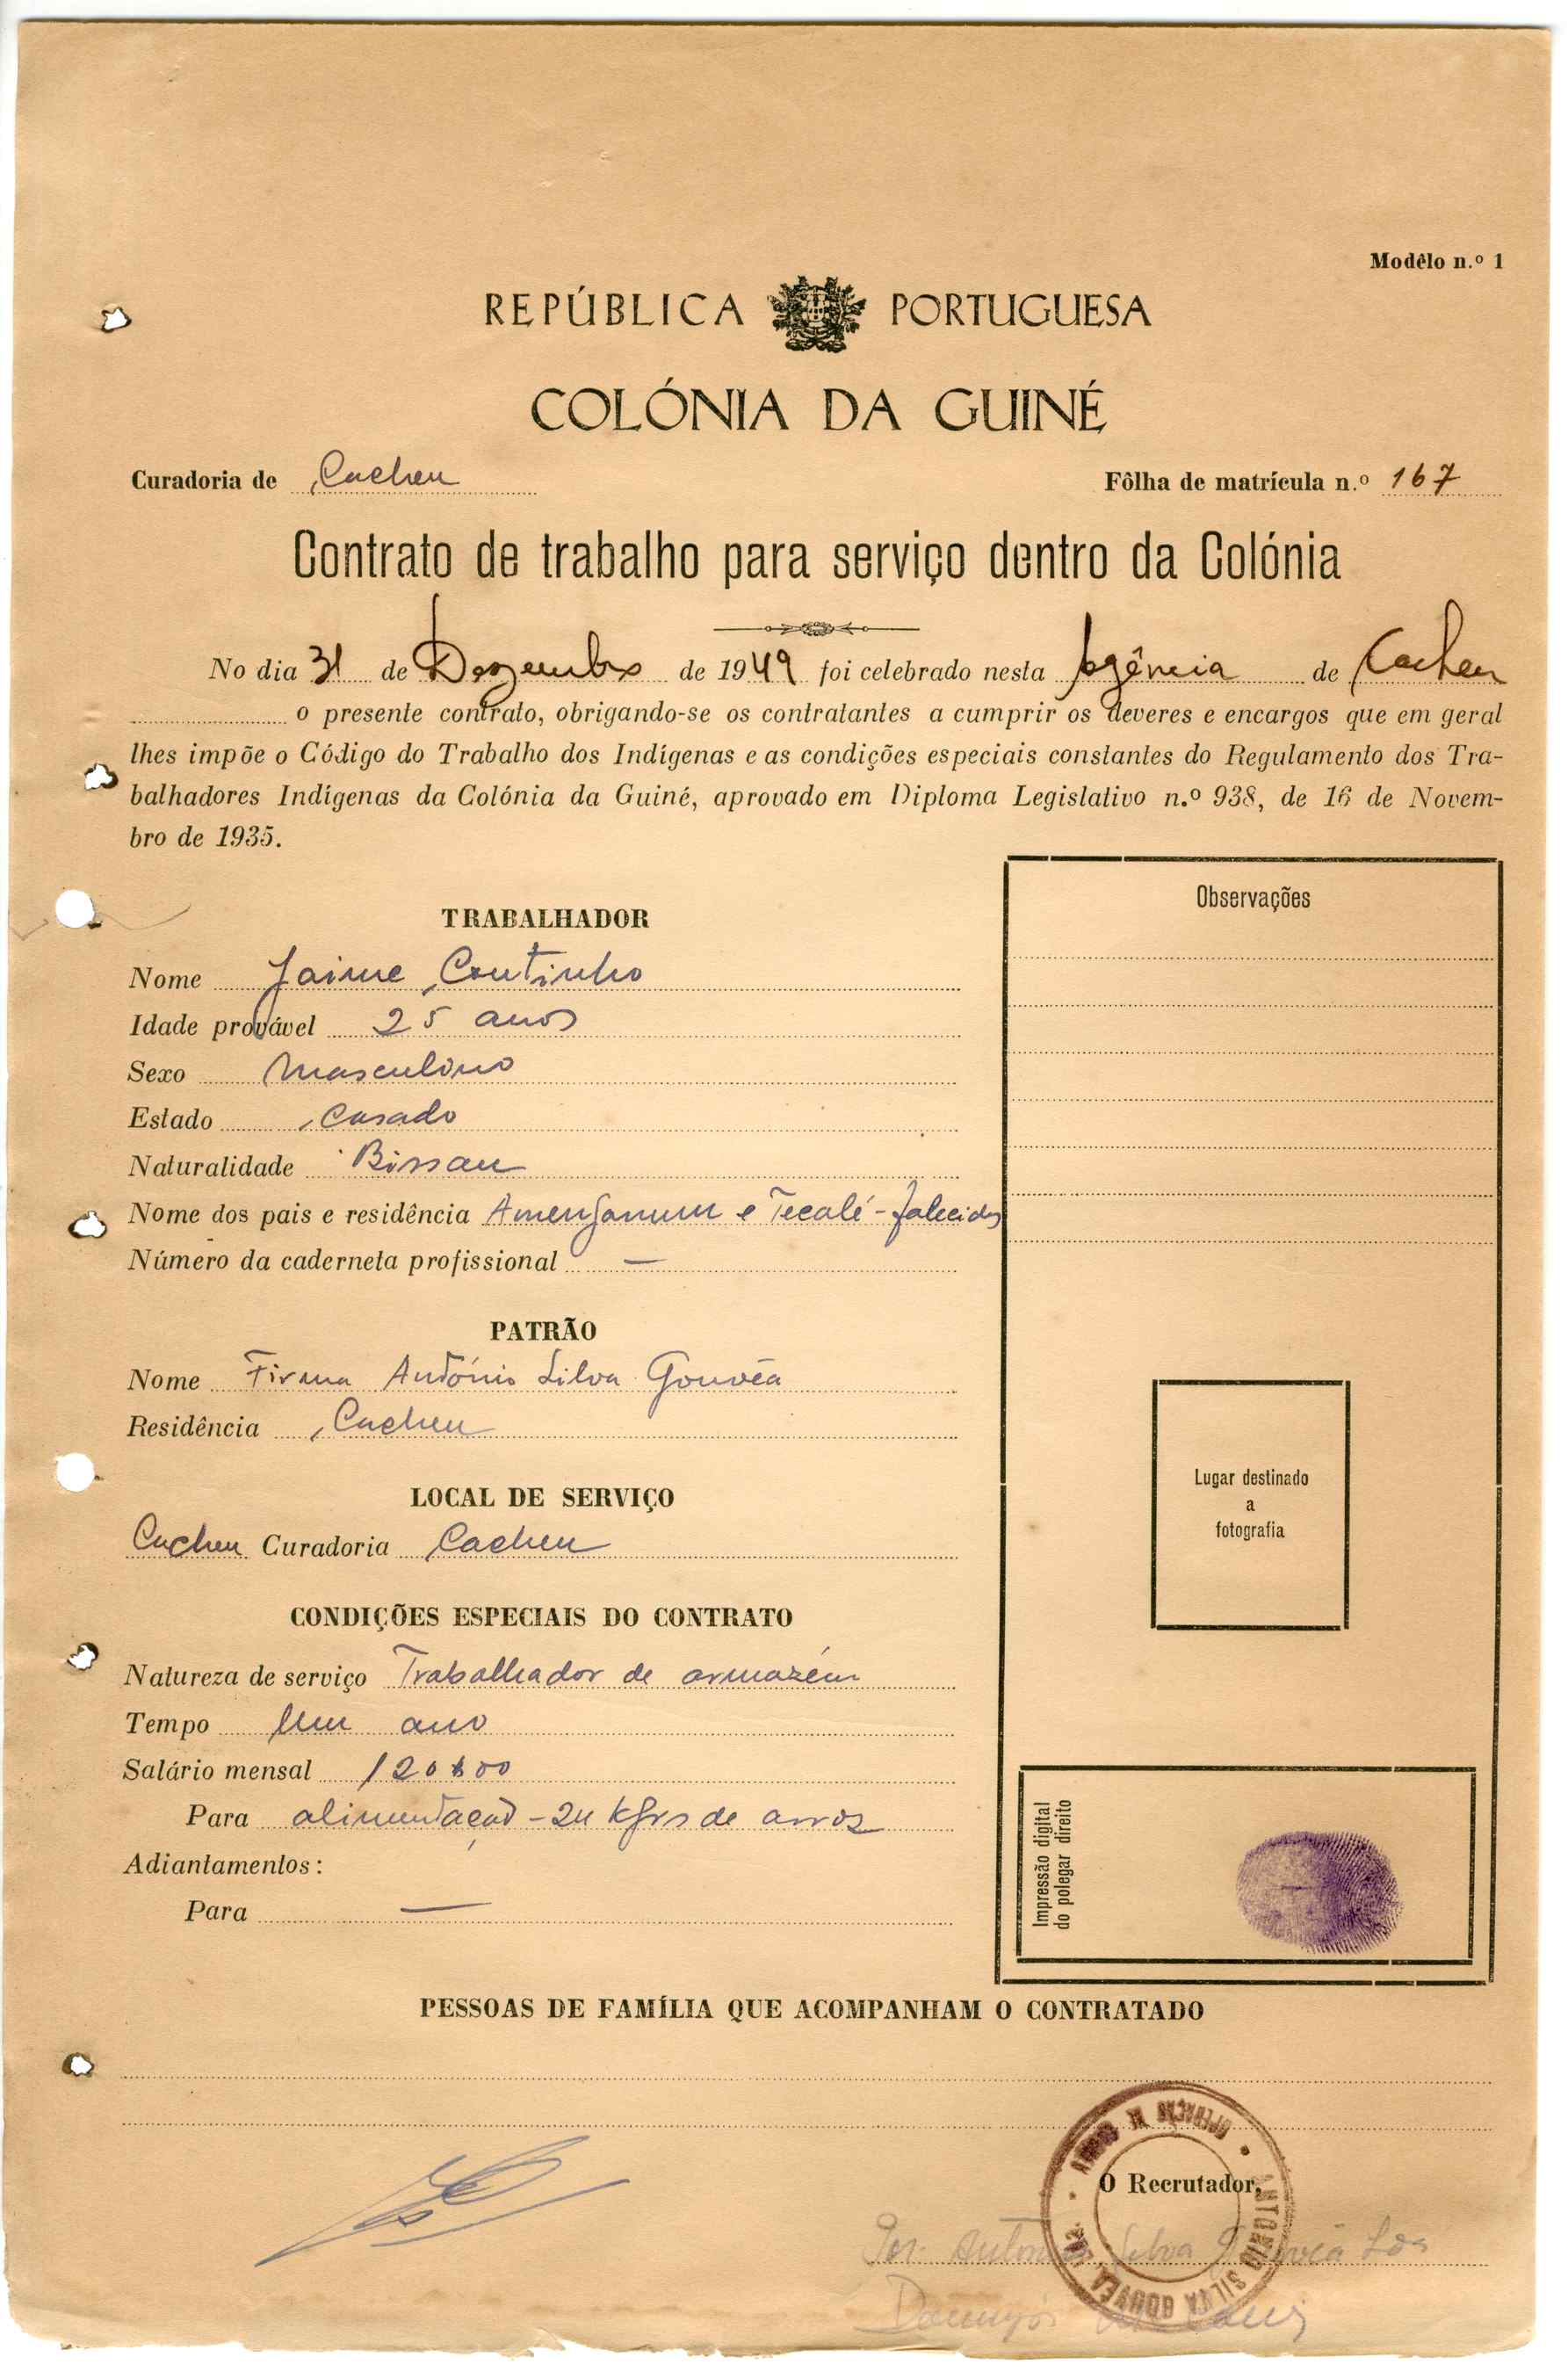 Modêlo n.º 1
REPÚBLICA PORTUGUESA
COLÓNIA DA GUINÉ
Curadoria de Cacheu Fôlha de matrícula n.º 167
Contrato de trabalho para serviço dentro da Colónia
No dia 31 de Dezembro de 1949 foi celebrado nesta Agência de Cacheu
o presente contrato, obrigando-se os contratantes a cumprir os deveres e encargos que em geral
lhes impõe o Código do Trabalho dos Indígenas e as condições especiais constantes do Regulamento dos Tra-
balhadores Indígenas da Colónia da Guiné, aprovado em Diploma Legislativo n.º 938, de 16 de Novem-
bro de 1935.
Observações
TRABALHADOR
Nome Jaime Coutinho
Idade provável 25 anos
Sexo Masculino
Estado Casado
Naturalidade Bissau
Nome dos pais e residência e Tecalé - falecidos
Número da caderneta profissional —
PATRÃO
Nome Firma António Silva Gouvêa
Residência Cacheu
LOCAL DE SERVIÇO
Cacheu Curadoria Cacheu
Lugar destinado
a
fotografia
CONDIÇÕES ESPECIAIS DO CONTRATO
Natureza de serviço Trabalhador de armazém
Tempo Um ano
Salário mensal 120$00
Para alimentação - 24 kgrs de arroz
Adiantamentos:
Para —
Impressão digital
do polegar direito
PESSOAS DE FAMÍLIA QUE ACOMPANHAM O CONTRATADO
O Recrutador,
ANTONIO SILVA GOUVEA, LDA.
Por António Silva Gouvêa Lda